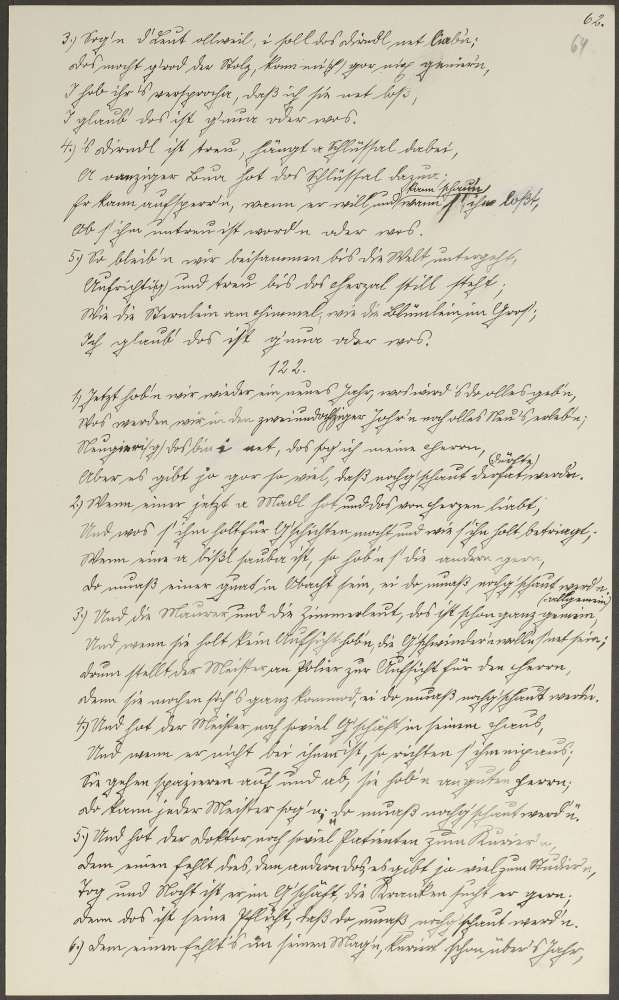 62.
64
3.) Sog'n d'Leut ollweil, i soll dos Dirndl net liab'n;
Dos mocht g'rod der Stolz, kann mi(ch) gor nix genier'n,
I hob ihr's versprocha, daß ich sie net loß,
I glaub' dos ist g'nua oder wos.
4.) 's Dirndl ist treu, hängt a Schlüssal dabei,
A oanziger Bua hot das Schlüssal dazua;
kann schaun,
Er kann aufsperr'n, wann er will, und wann s' ihn loßt,
Ob s' ihm untreu ist word'n oder wos.
5.) So bleib'n wir beisammen bis die Welt untergeht,
Aufrichti(g) und treu bis dos Herzal still steht;
Wie die Sternlein am Himmel, wie die Blümlein im Gros;
Ich glaub' dos ist g'nua oder wos.
122.
1.) Jetzt hob'n wir wieder ein neues Johr, wos wird 's do olles geb'n,
Wos werden wir in den zweiundachtziger Johr'n noch olles Neu's erleb'n;
Neugieri(g) dos bin i net, dos sog' ich meine Herrn,
(dürfte)
Aber es gibt jo gor so viel, daß nochg'schaut derfat werd'n.
2.) Wenn einer jetzt a Madl hot und dos von Herzen liabt,
Und wos s' ihm holt für G'schichten mocht und wie s' ihn holt betriagt;
Wenn eine a bißl sauba ist, so hob'n s' die andern gern,
Do muaß einer guat in Obacht sein, ei do muaß nochg'schaut werd'n.
(allgemein)
3.) Und die Maurer und die Zimmerleut, dos ist schon ganz gemein,
Und wenn sie holt kein Aufsicht hob'n, die G'schwinder'n woll'n s' net sein;
Drum stellt der Meister an Polier zur Aufsicht für den Herrn,
Denn sie mochen sich's ganz kommod, ei do muaß nochg'schaut werd'n.
4.) Und hot der Meister noch soviel G'schäft in seinem Haus,
Und wenn er nicht bei ihnen ist, so richten s' ihm nix aus;
Sie gehen spazieren auf und ab, sie hob'n an guten Herrn;
Do kann jeder Meister sog'n; "do muaß nochg'schaut werd'n.
5.) Und hot der Doktor noch soviel Patienten zum Kurier'n,
Dem einen fehlt dies, dem andern dos, es gibt jo viel zum Studier'n,
Tog und Nocht ist er im G'schäft, die Kranken sucht er gern;
Denn dos ist seine Pflicht, daß do muaß nochg'schaut werd'n.
6.) Dem einen fehlt's im seinen Mag'n, kuriert schon über's Johr,